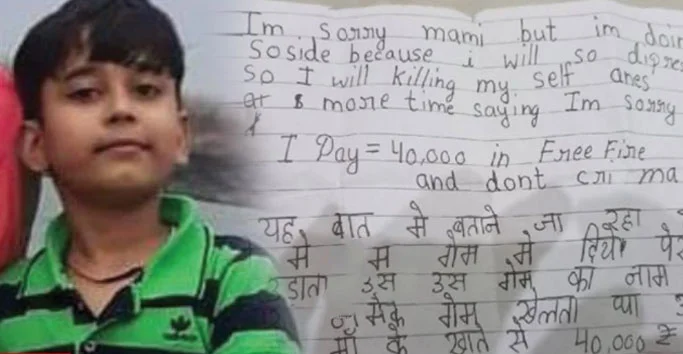 Im sorry mami but im doin
Soside because i will so dipre
So I will killing my self ares
at more time saying Im sorry
I Pay = 40,000 in Free Fire
and dont cri ma
यह बात मे बताने जा रहा
मे म गेम मे दिये पे
उडाता उस उस गेम का नाम
मैक गेम खेलता था
माँ के खाते से 40,000 ₹